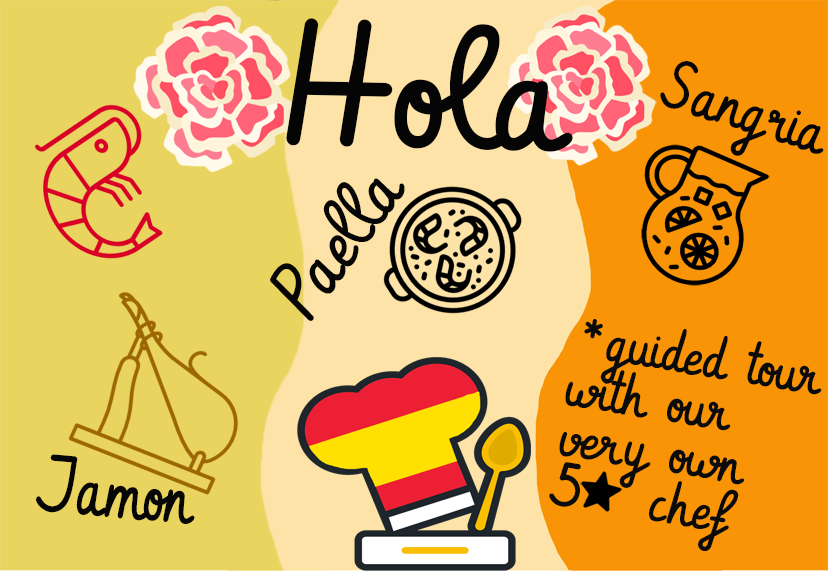 Hola
Sangria
Paella
Jamon
*guided tour
with our
very own
5★ chef